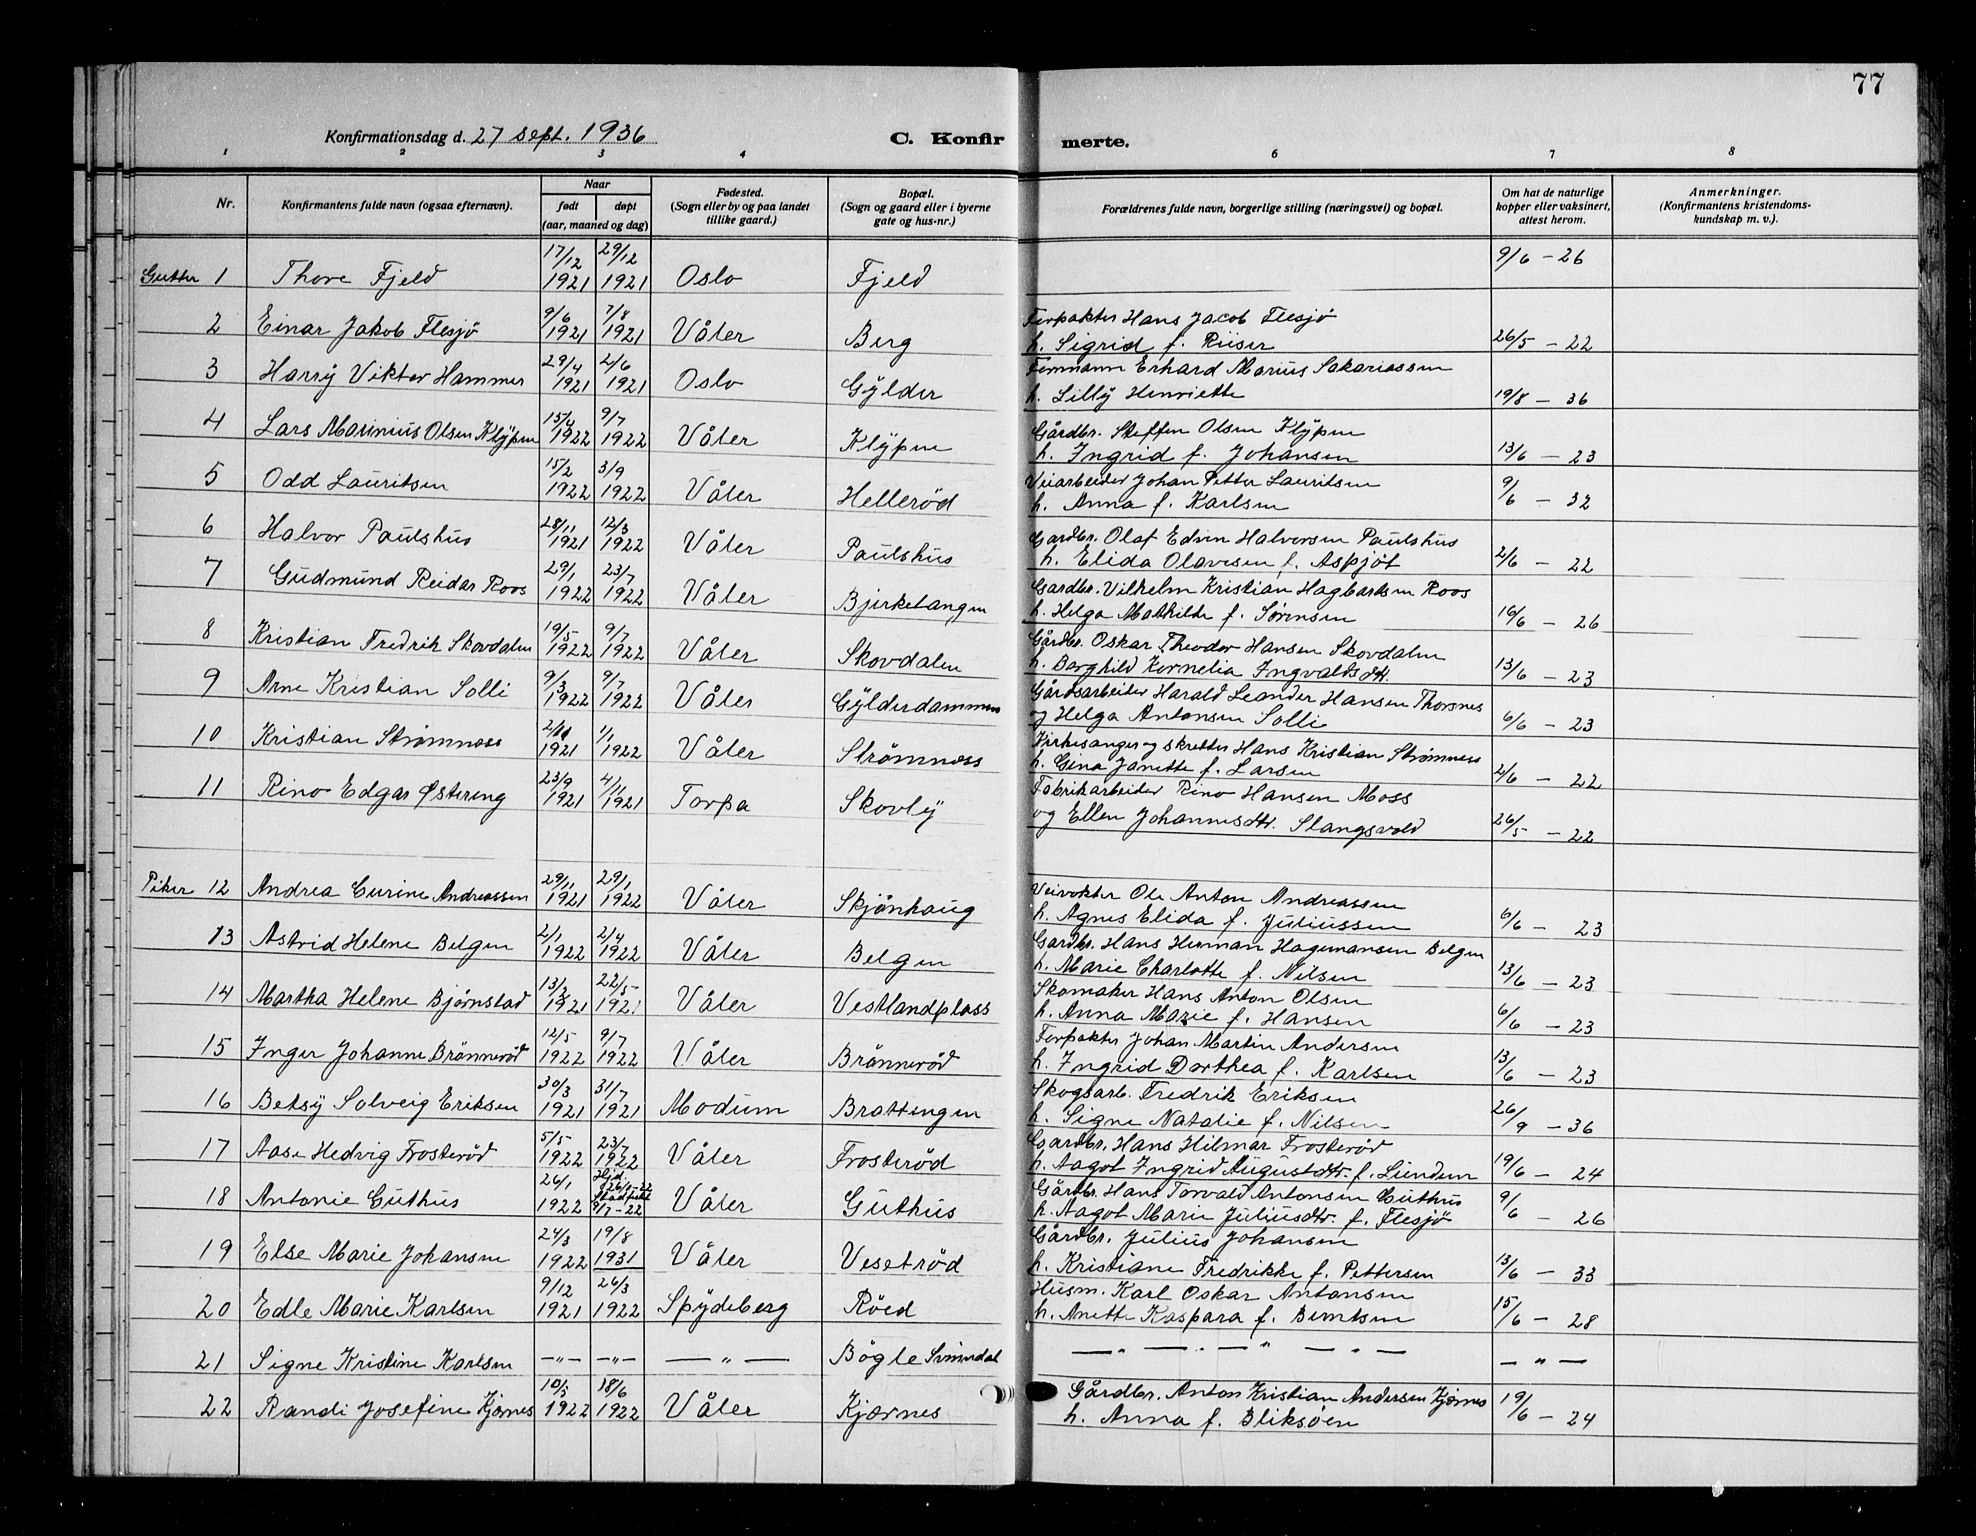 77
Konfirmationsdag d. 27 sept. 1936 C. Konfirmerte.
1 2 3 4 5 6 7 8
Nr. Konfirmantens fulde navn (ogsaa efternavn). Naar født døpt (aar, maaned og dag) Fødested. (Sogn eller by og paa landet tillike gaard.) Bopæl. (Sogn og gaard eller i byerne gate og hus-nr.) Forældrenes fulde navn, borgerlige stilling (næringsvei) og bopæl. Om hat de naturlige kopper eller vaksinert, attest herom. Anmerkninger. (Konfirmantens kristendomskundskap m. v.).
Gutter 1 Thore Fjeld 17/12 1921 29/12 1921 Oslo Fjeld 9/6 - 26
2 Einar Jakob Flesjö 9/6 1921 7/8 1921 Våler Berg Forpakter Hans Jacob Flesjö
h. Sigrid f. Riiser 26/5 - 22
3 Harry Viktor Hammer 29/4 1921 2/6 1921 Oslo Gylder Erhard Marius Sakariassen
h. Lilly Henriette 19/8 - 36
4 Lars Marinius Olsen Klypen 15/4 1922 9/7 1922 Våler Klypen Gårdbr. Steffen Olsen Klypen
h. Ingrid f. Johansen 13/6 - 23
5 Odd Lauritsen 15/2 1922 3/9 1922 Våler Helleröd Veiarbeider Johan Petter Lauritsen
h. Anna f. Karlsen 9/6 - 32
6 Halvor Paulshus 28/11 1921 12/3 1922 Våler Paulshus Gardbr. Olaf Edvin Halvorsen Paulshus
h. Elida Olavesen f. Aspjøt 2/6 - 22
7 Gudmund Reidar Roos 29/1 1922 23/7 1922 Våler Bjerketangen Gardbr. Vilhelm Kristian Hagbartsen Roos
h. Helga Mathilde f. Sørensen 16/6 - 26
8 Kristian Fredrik Skovdalen 19/5 1922 9/7 1922 Våler Skovdalen Gårdbr. Oskar Theodor Hansen Skovdalen
h. Borghild Kornelia Ingvaldsdtr. 13/6 - 23
9 Arne Kristian Solli 9/3 1922 9/7 1922 Våler Gylderdammen Gårdsarbeider Harald Leander Hansen Thorsnes
og Helga Antonsen Solli 6/6 - 23
10 Kristian Strømnæss 1921 1/1 1922 Våler Strømnæss Kirkesanger og skredder Hans Kristian Strømnæss
h. Gina Janette f. Larsen 2/6 - 22
11 Rino Edgar Østereng 23/9 1921 4/11 1921 Torpa Skovly Fabrikarbeider Rino Hansen Moss
og Ellen Johannesdtr. Slangsvold 26/5 - 22
Piker 12 Andrea Curine Andreassen 29/11 1921 29/1 1922 Våler Skjönhaug Veivokter Ole Anton Andreassen
h. Agnes Elida f. Juliussen 6/6 - 23
13 Astrid Helene Belgen 2/1 1922 2/4 1922 Våler Belgen Gardbr. Hans Herman Hagemansen Belgen
h. Marie Charlotte f. Nilsen 13/6 - 23
14 Martha Helene Bjørnstad 13/2 1921 22/5 1921 Våler Vestlandplass Skomaker Hans Anton Olsen
h. Anna Marie f. Hansen 6/6 - 23
15 Inger Johanne Brånneröd 12/5 1922 9/7 1922 Våler Brånneröd Forpakter Johan Martin Andersen
h. Ingrid Dorthea f. Karlsen 13/6 - 23
16 Betsy Solveig Eriksen 30/3 1921 31/7 1921 Modum Brattengen Skogsarb. Fredrik Eriksen
h. Signe Natalie f. Nilsen 26/9 - 36
17 Aase Hedvig Frosteröd 5/5 1922 23/7 1922 Våler Frosteröd Gardbr. Hans Hilmar Frosterød
h. Aagot Ingrid Augustdtr. f. Lundum 19/6 - 24
18 Antonie Guthus 26/1 1922 Hjd. 26/1-22 Stadfestet 9/7-22 Våler Guthus Gårdbr. Hans Torvald Antonsen Guthus
h. Aagot Marie Juliusdtr. f. Flesjö 9/6 - 26
19 Else Marie Johansen 24/3 1922 19/8 1931 Våler Veseteröd Gårdbr. Julius Johansen
h. Kristiane Fredrikke f. Pettersen 13/6 - 33
20 Edle Marie Karlsen 9/12 1921 26/3 1922 Spydeberg Röed Husm. Karl Oskar Antonsen
h. Anette Kaspara f. Berntsen 15/6 - 28
21 Signe Kristine Karlsen -"- -"- - " - Bögle Svinndal - " - " - " - " - - " -
22 Randi Josefine Kjærnes 10/3 1922 18/6 1922 Våler Kjærnes Gårdbr. Anton Kristian Andersen Kjærnes
h. Anna f. Bliksöen 19/6 - 24